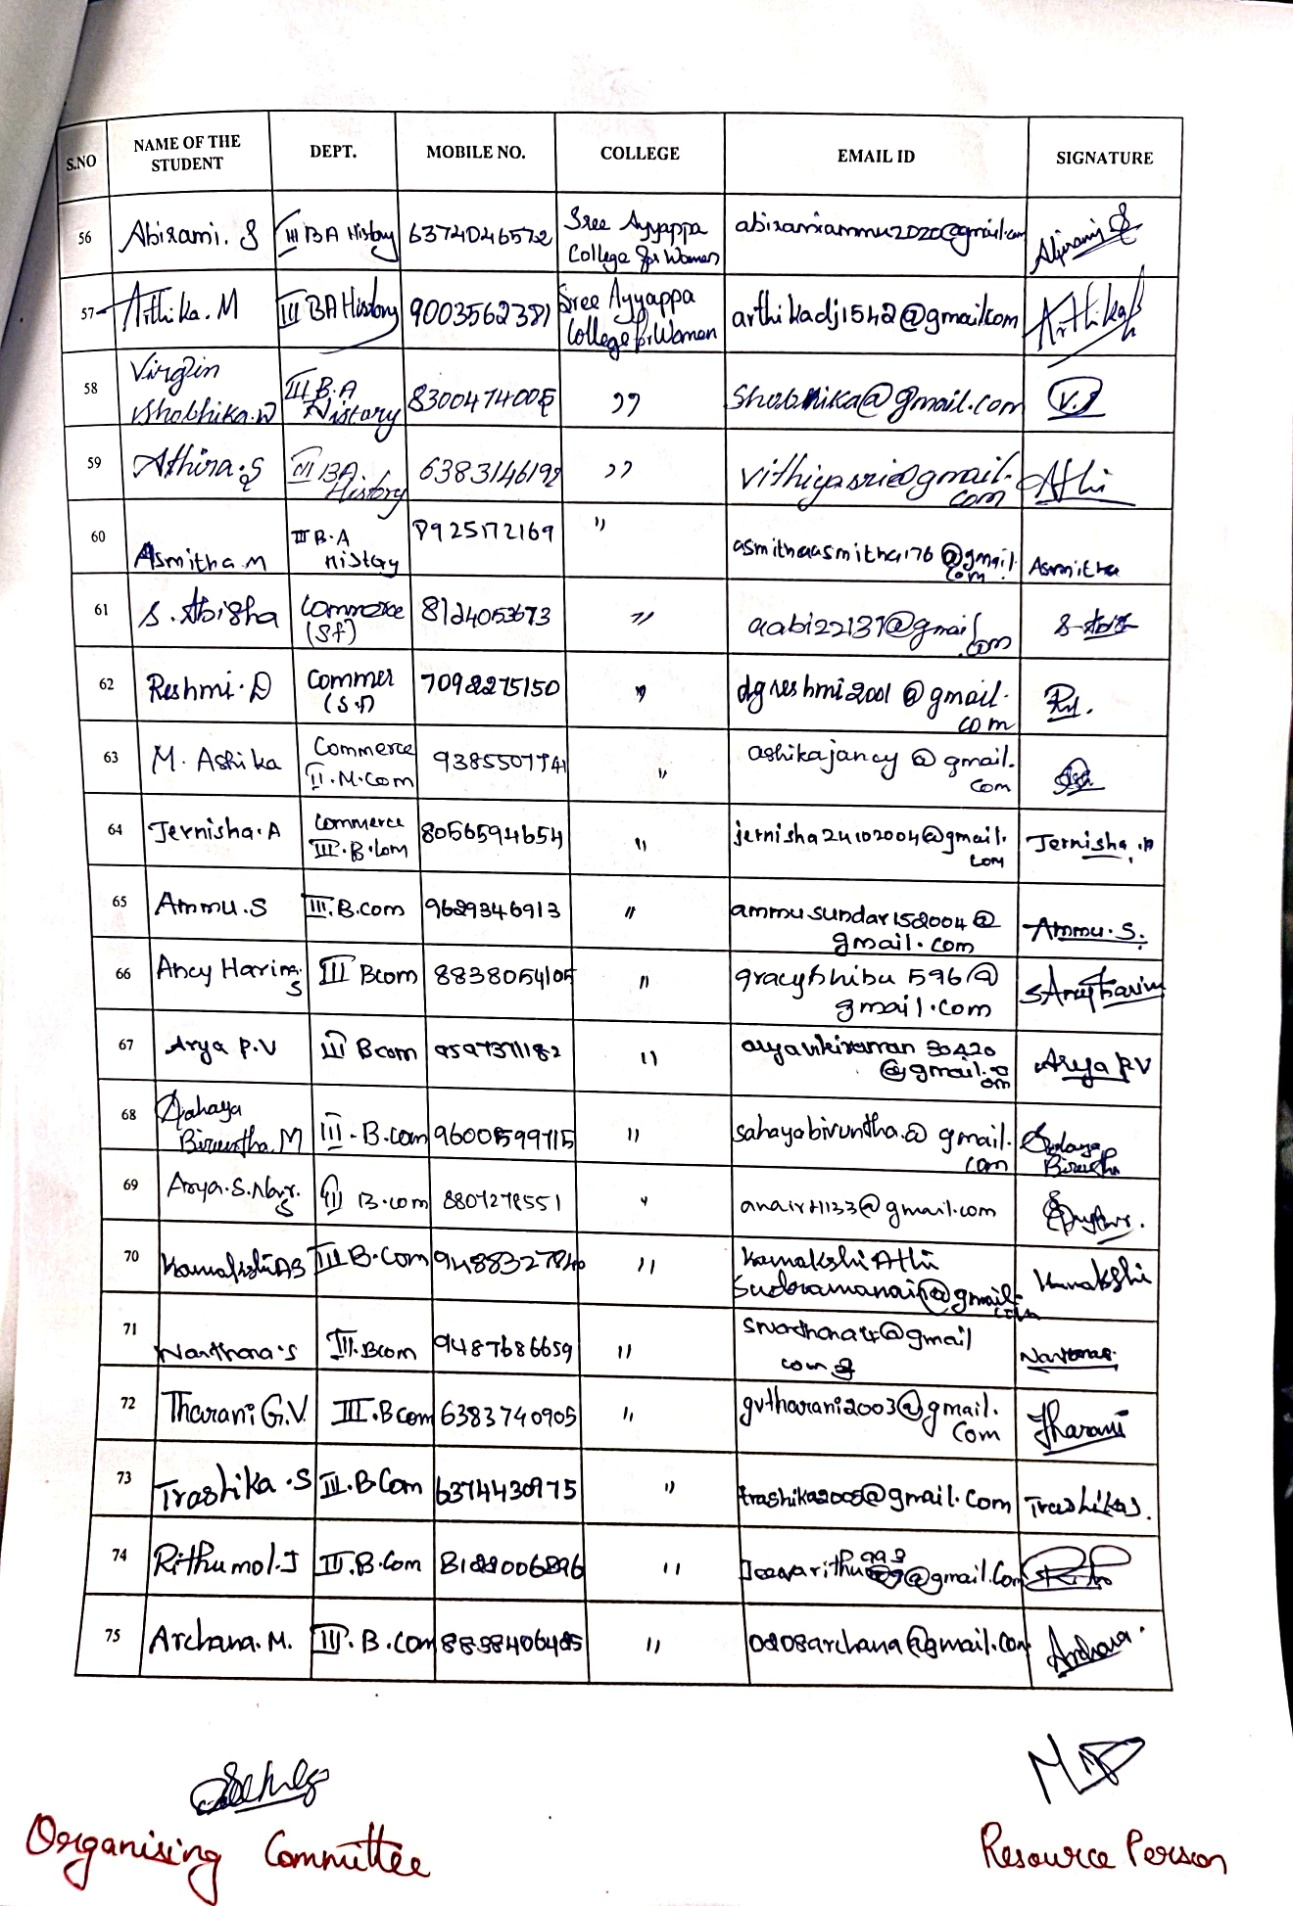 S.NO NAME OF THE STUDENT DEPT. MOBILE NO. COLLEGE EMAIL ID SIGNATURE
56 Abirami. S III BA History 6374046572 Sree Ayyappa College for Women abiramiammu2020@gmail.com Abirami S
57 Arthika. M III BA History 9003562381 Sree Ayyappa College for Women arthikadj1542@gmailcom Arthika
58 Virgin Shobhika.W III B.A History 830047400 ,, @gmail.com V.S
59 Athira.S III BA History 6383146192 ,, vithiyasri@gmail.com Athi
60 Asmitha M III B.A History 8925172169 ,, @gmail.com Asmitha
61 S. Abisha Commerce (Sf) 8124053673 ,, aabi22137@gmail.com
62 Reshmi. D Commer (S.f) 7092275150 ,, dgreshmi2001@gmail.com
63 M. Ashika Commerce II. M.Com 9385507741 ,, ashikajancy@gmail.com
64 Jernisha. A Commerce III. B.Com 8056594654 ,, jernisha24102004@gmail.com Jernisha .A
65 Ammu. S III. B.Com 9629346913 ,, ammusundar152004@gmail.com Ammu. S.
66 Ancy Harins. S III Bcom 8838054105 ,, gracyshibu596@gmail.com
67 Arya P.V III Bcom 9597371182 ,, @gmail.com Arya P.V
68 Sahaya Biruntha. M III - B.com 9600599715 ,, sahayabiruntha@gmail.com Sahaya Biruntha
69 Arya. S. III B.com 8807278551 ,, @gmail.com
70 Kamakshi III B.Com ,, Kamakshi
71 Nanthana S III. Bcom 9487686659 ,, @gmail com
72 Tharani G.V. III. Bcom 6383740905 ,, gvtharani2003@gmail.com Tharani
73 Trashika .S III. B.Com 6374430975 ,, trashika2005@gmail.com Trashika S.
74 Rithumol. J III. B.Com 8122006896 ,, @gmail.com
75 Archana. M. III. B. com 8838406485 ,, 0208archana@gmail.com Archana
Organising Committee Resource Person